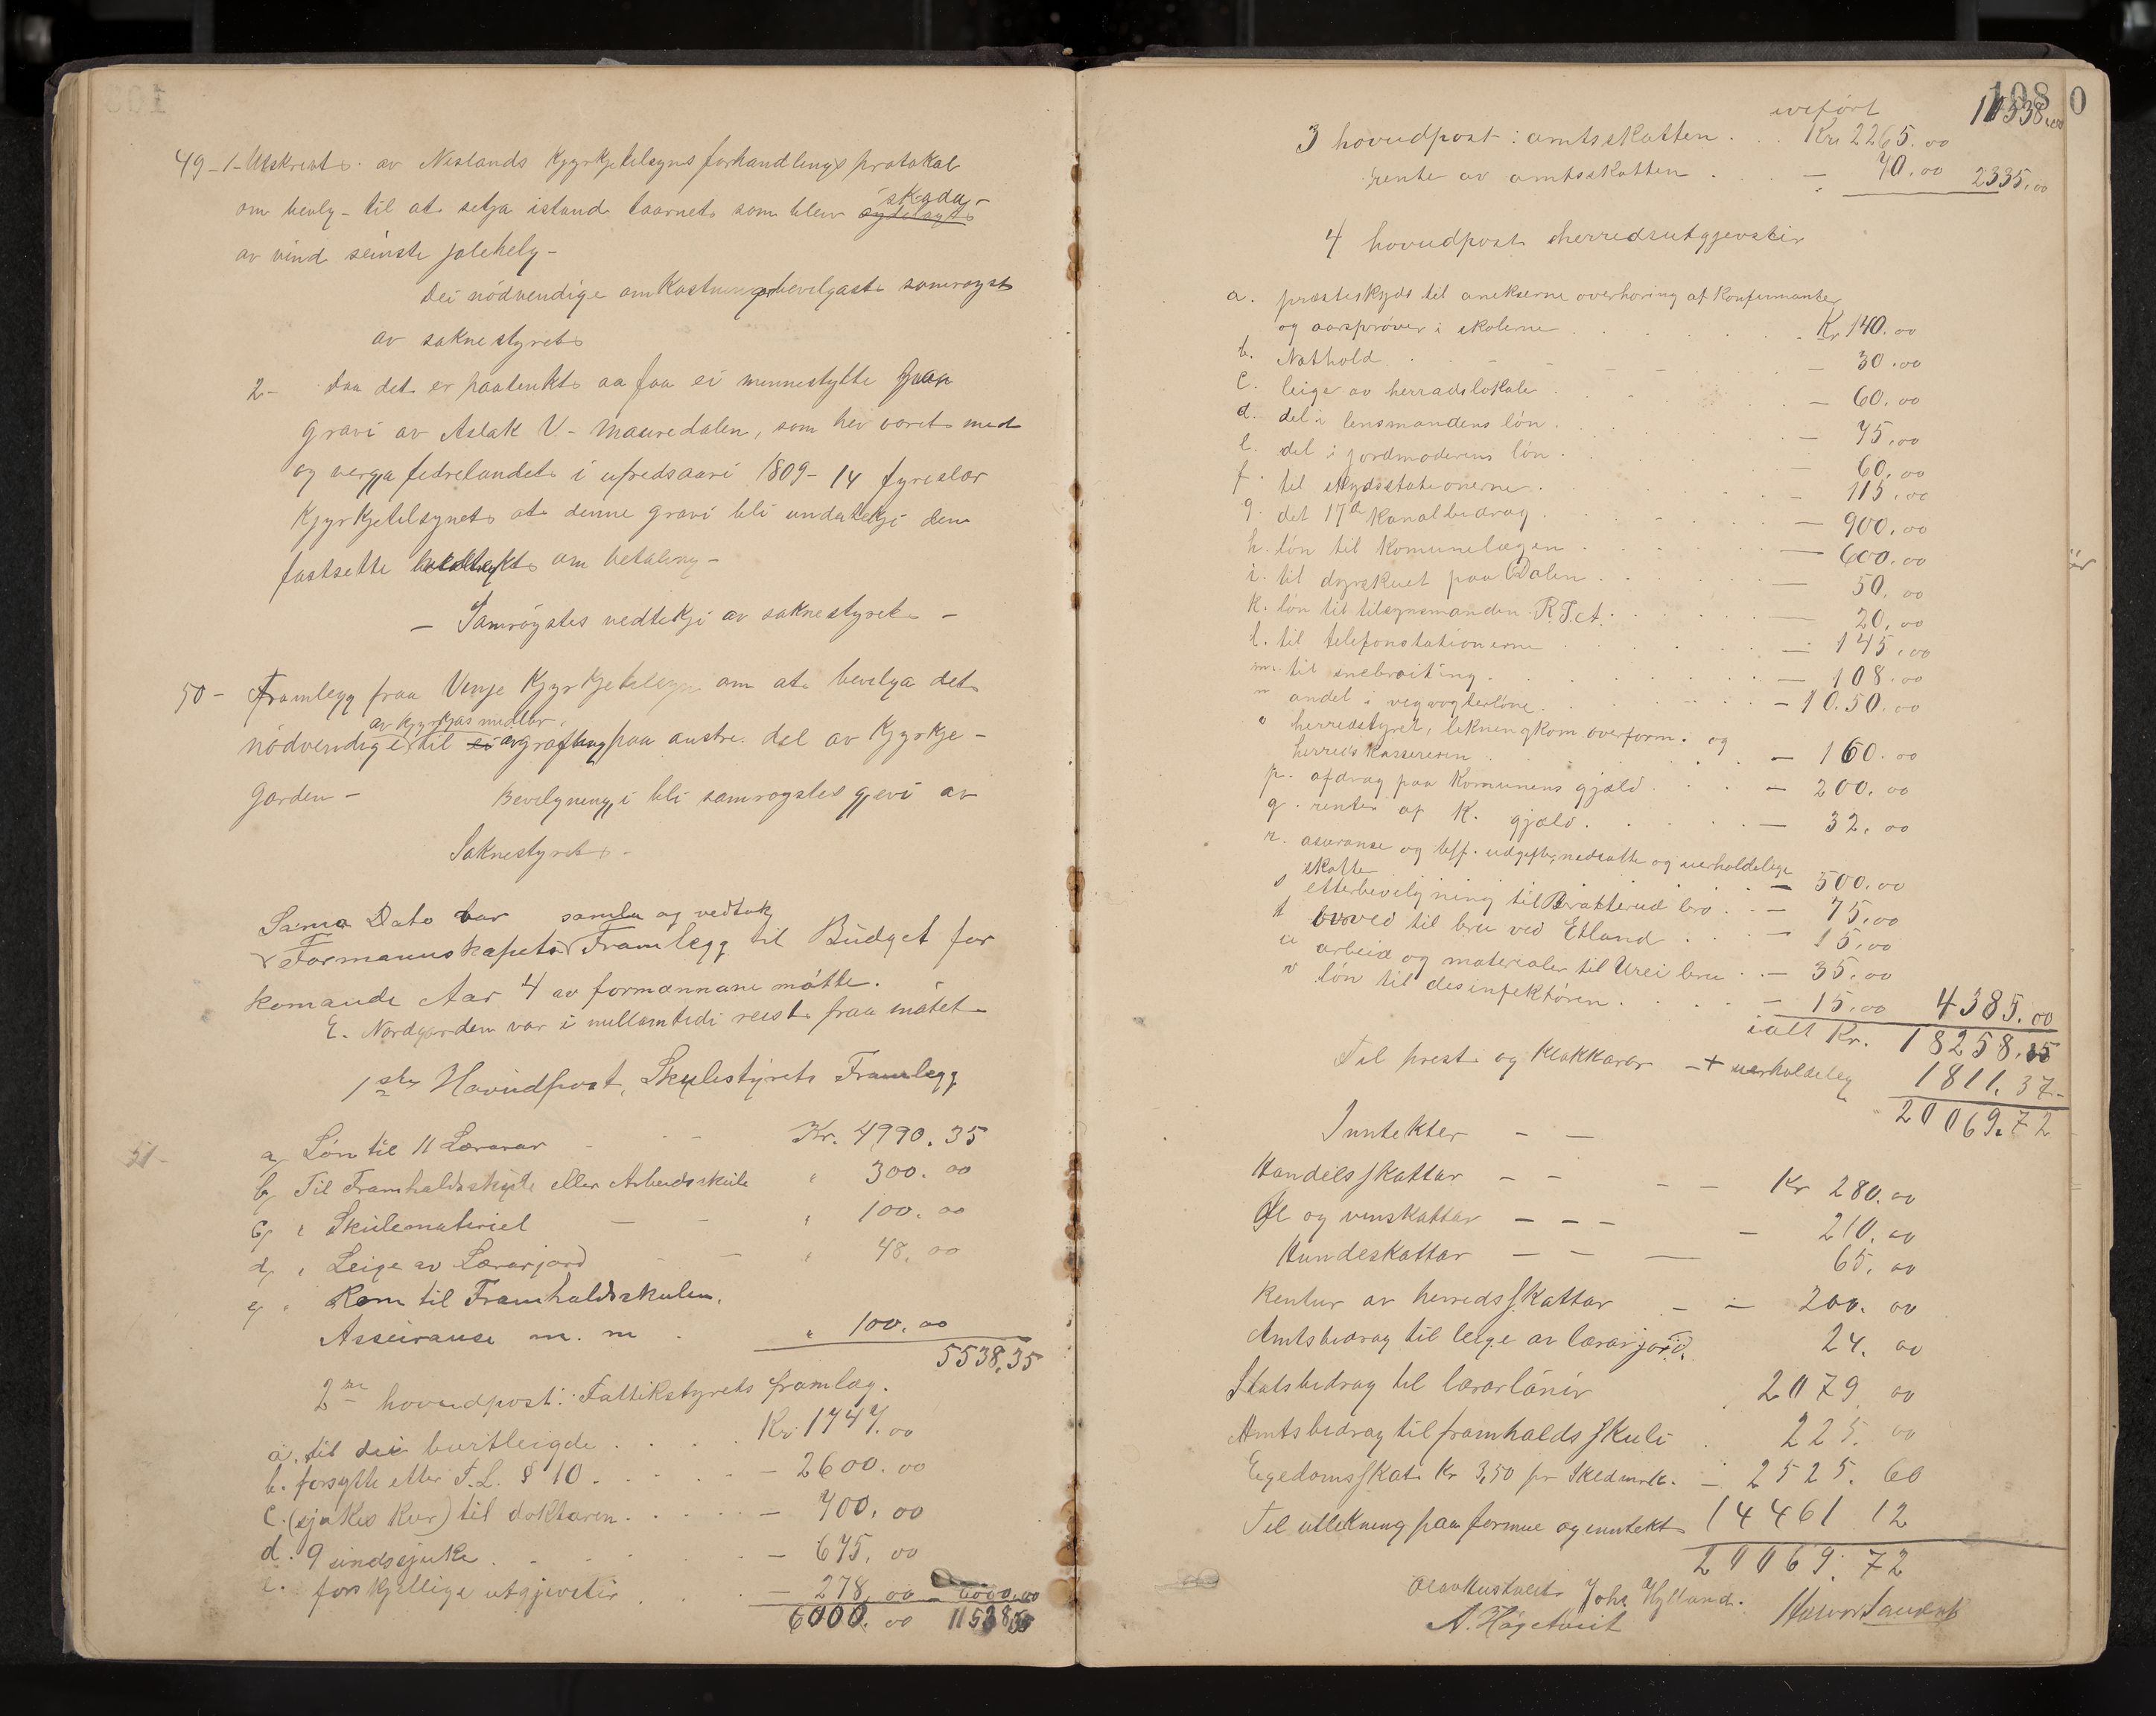 49-1- Utskrivt av Neslands Kyrkjetilsyns forhandlings protokal
om bevlg- til at setja istand taarnet som blev skada-
av vind seinste jolehelg-
Dei nödvendige omkostningar bevilgast samrøyst
av saknestyret
2- Daa det er paatenkt aa faa ei minnestytte paa
gravi av Aslak V- Mauredalen, som hev voret med
og verja fedrelandet i ufredsaari 1809-14 fyreslær
Kyrkjetilsynet at denne gravi bli undateki den
fastsette om betaling-
- Samrøystes vedteki av saknestyret -
50- Framlegg fraa Vinje Kyrkjetilsyn om at bevilga det
av Kyrkjas midlar
nödvendige til avgrøfting paa austre del av Kyrkje-
garden- Bevilgningi bli samrøystes gjevi av
Saknestyret-
Sama Dato var samla og vedtok
Formannskapets Framlegg til Büdget for
komande Aar 4 av formannane møtte.
E. Nordgarden var i millomtidi reist fraa møtet-
51-
1ste Hovüdpost, Skulestyrets Framlegg
a, Løn til 11 Lærarar - - Kr. 4990.35
b, Til Framhaldsskule eller Arbeidsskule " 300.00
c, " Skülemateriel - - " 100.00
d, " Leige av Lærarjord - - " 48.00
e, " Rom til Framhaldsskulen,
Asseüranse m. m. " 100.00
5538,35
2re hovudpost: Fattikstyrets framlag.
a. til dei burtleigde . . . . Kr. 1747.00
b. forsytte etter F.L. § 10 . . . . - 2600.00
c. (sjukes kur) til doktaren . . . . - 700.00
d. 9 sindssjuke . . . . - 675.00
e. forskjellige utgjevter . . . - 278.00 - 6000.00
6000.00 11538,35
108
0
overført 11538,35
3 hovudpost: amtsskatten . . Kr. 2265.00
rente av amtsskatten . . . - 70.00 2335.00
4 hovudpost herredsutgjevter
a. præsteskyds til anekserne overhøring af Konfirmanter
og aarsprøver i skolerne . . . . Kr 140.00
b. Nathold . . - - - 30.00
c. leige av herradslokale . . . - 60.00
d. del i lensmandens løn . . . - 75.00
e. del i jordmoderens løn . . . - 60.00
f. til skydsstationerne . . . - 115.00
g. det 17de Kanalbidrag . . . - 900.00
h. løn til Komunelægen . . . - 600.00
i. til dyrskuet paa Dalen . . . - 50.00
k. løn til tilsynsmanden R.T.A. . . . - 20.00
l. til telefonstationerne . . . - 145.00
m. til snebrøiting . . . - 108.00
n andel i vegvogterløne . . . - 10.50.00
o herredstyret, likningkom. overform. og
herreds Kassereren . . . - 160.00
p. afdrag paa Komunens gjæld . . . - 200.00
q. renter af K. gjæld . . . - 32.00
r. asuranse og tilf. udgifter, nedsatte og uerholdelige
skatter - 500.00
s etterbevilgning til Bratterud bro . . - 75.00
t buved til bru ved Etland . . . - 15.00
u arbeid og materialer til Urei bru . . - 35.00
v løn til desinfektøren . . . . - 15.00 4385.00
ialt Kr. 18258.35
Til prest og Klokkarar - + uerholdeleg 1811.37-
20069.72
Inntekter - -
Handelsskattar - - - - Kr 280.00
Øl og vinskattar - - - - 210.00
Hundeskattar - - - 65.00
Rentur av herredsskattar - - 200.00
Amtsbidrag til leige av lærarjord. 24.00
Statsbidrag til lærarlønir 2079.00
Amtsbidrag til framhaldsskuli . 225.00
Eigedomsskat Kr 3,50 pr Skldmrk. - 2525.60
Til utlikning paa formue og inntekt 14461 12
20069.72
Olav Hustveit Joh. Hylland. Halvor
A. Høgetveit